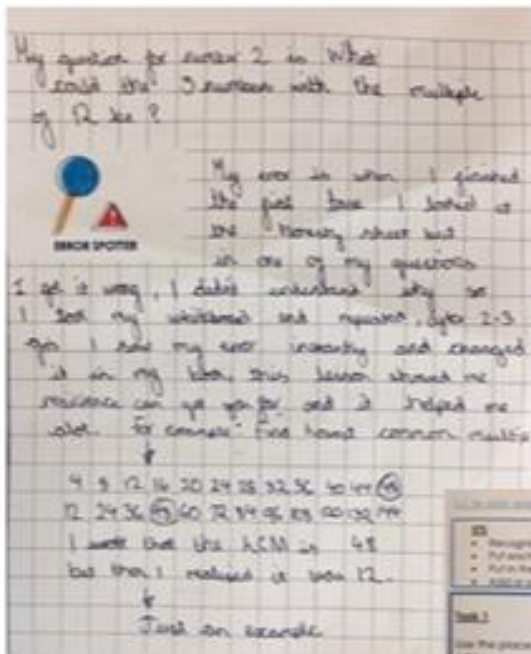 My question for             2 is What
could the 3 numbers with the multiple
of 12 be?
ERROR SPOTTER
My error is when I finished
the first task I looked at
the             sheet but
in one of my questions
I got it wrong, I didn't understand why so
I took my whiteboard and repeated, after 2-3
goes I saw my error instantly and changed
it in my book, this lesson showed me
resilience can get you far and it helped me
alot. For example: Find lowest common multiple
4 8 12 16 20 24 28 32 36 40 44 48
12 24 36 48 60 72 84 96       120 132 144
I wrote that the LCM is 48
but then I realised it was 12.
Just an example
Task 1
Use the